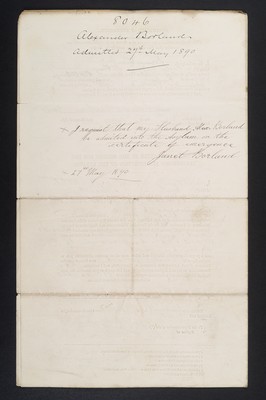 8046
Alexander Borland
Admitted 27th May 1890
I request that my Husband Alex. Borland
be admitted into the Asylum on the
certificate of emergency
Janet Borland
27th May 1890